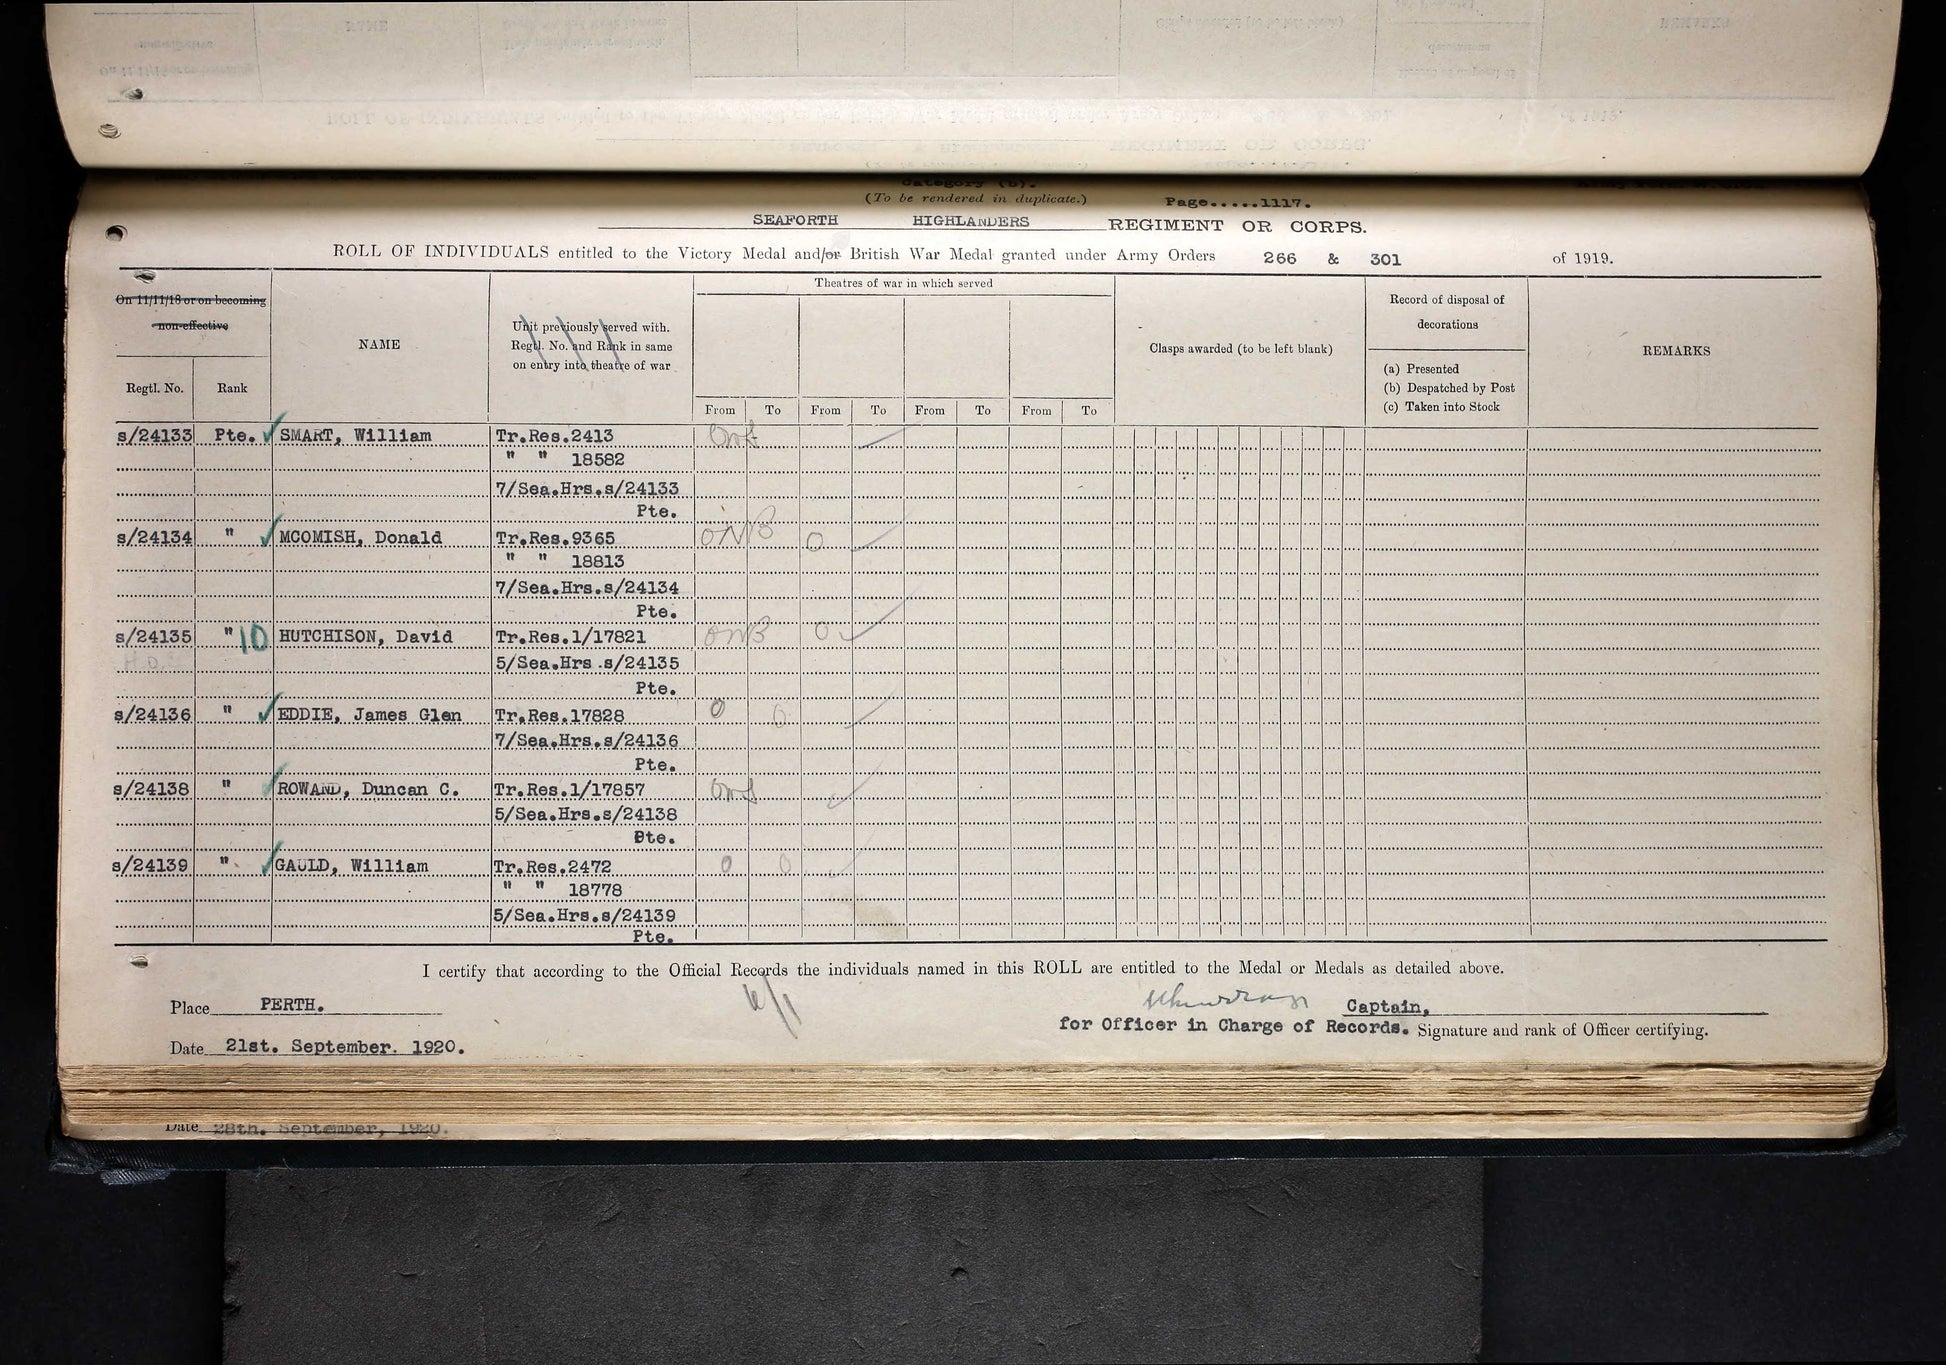 Category (B).
(To be rendered in duplicate.) Page.....1117.
SEAFORTH HIGHLANDERS REGIMENT OR CORPS.
ROLL OF INDIVIDUALS entitled to the Victory Medal and/or British War Medal granted under Army Orders 266 & 301 of 1919.
On 11/11/18 or on becoming non-effective
Regtl. No. Rank
NAME
Unit previously served with.
Regtl. No. and Rank in same
on entry into theatre of war
Theatres of war in which served
From To From To From To From To
Clasps awarded (to be left blank)
Record of disposal of
decorations
(a) Presented
(b) Despatched by Post
(c) Taken into Stock
REMARKS
s/24133 Pte. SMART, William Tr.Res.2413
" " 18582
7/Sea.Hrs.s/24133
Pte.
s/24134 " MCOMISH, Donald Tr.Res.9365 ONB O
" " 18813
7/Sea.Hrs.s/24134
Pte.
s/24135 " 10 HUTCHISON, David Tr.Res.1/17821 ONB O
5/Sea.Hrs.s/24135
Pte.
s/24136 " EDDIE, James Glen Tr.Res.17828 O O
7/Sea.Hrs.s/24136
Pte.
s/24138 " ROWAND, Duncan C. Tr.Res.1/17857
5/Sea.Hrs.s/24138
Pte.
s/24139 " GAULD, William Tr.Res.2472 O O
" " 18778
5/Sea.Hrs.s/24139
Pte.
I certify that according to the Official Records the individuals named in this ROLL are entitled to the Medal or Medals as detailed above.
Place PERTH. Captain,
for Officer in Charge of Records. Signature and rank of Officer certifying.
Date 21st. September. 1920.
Date 28th. September, 1920.